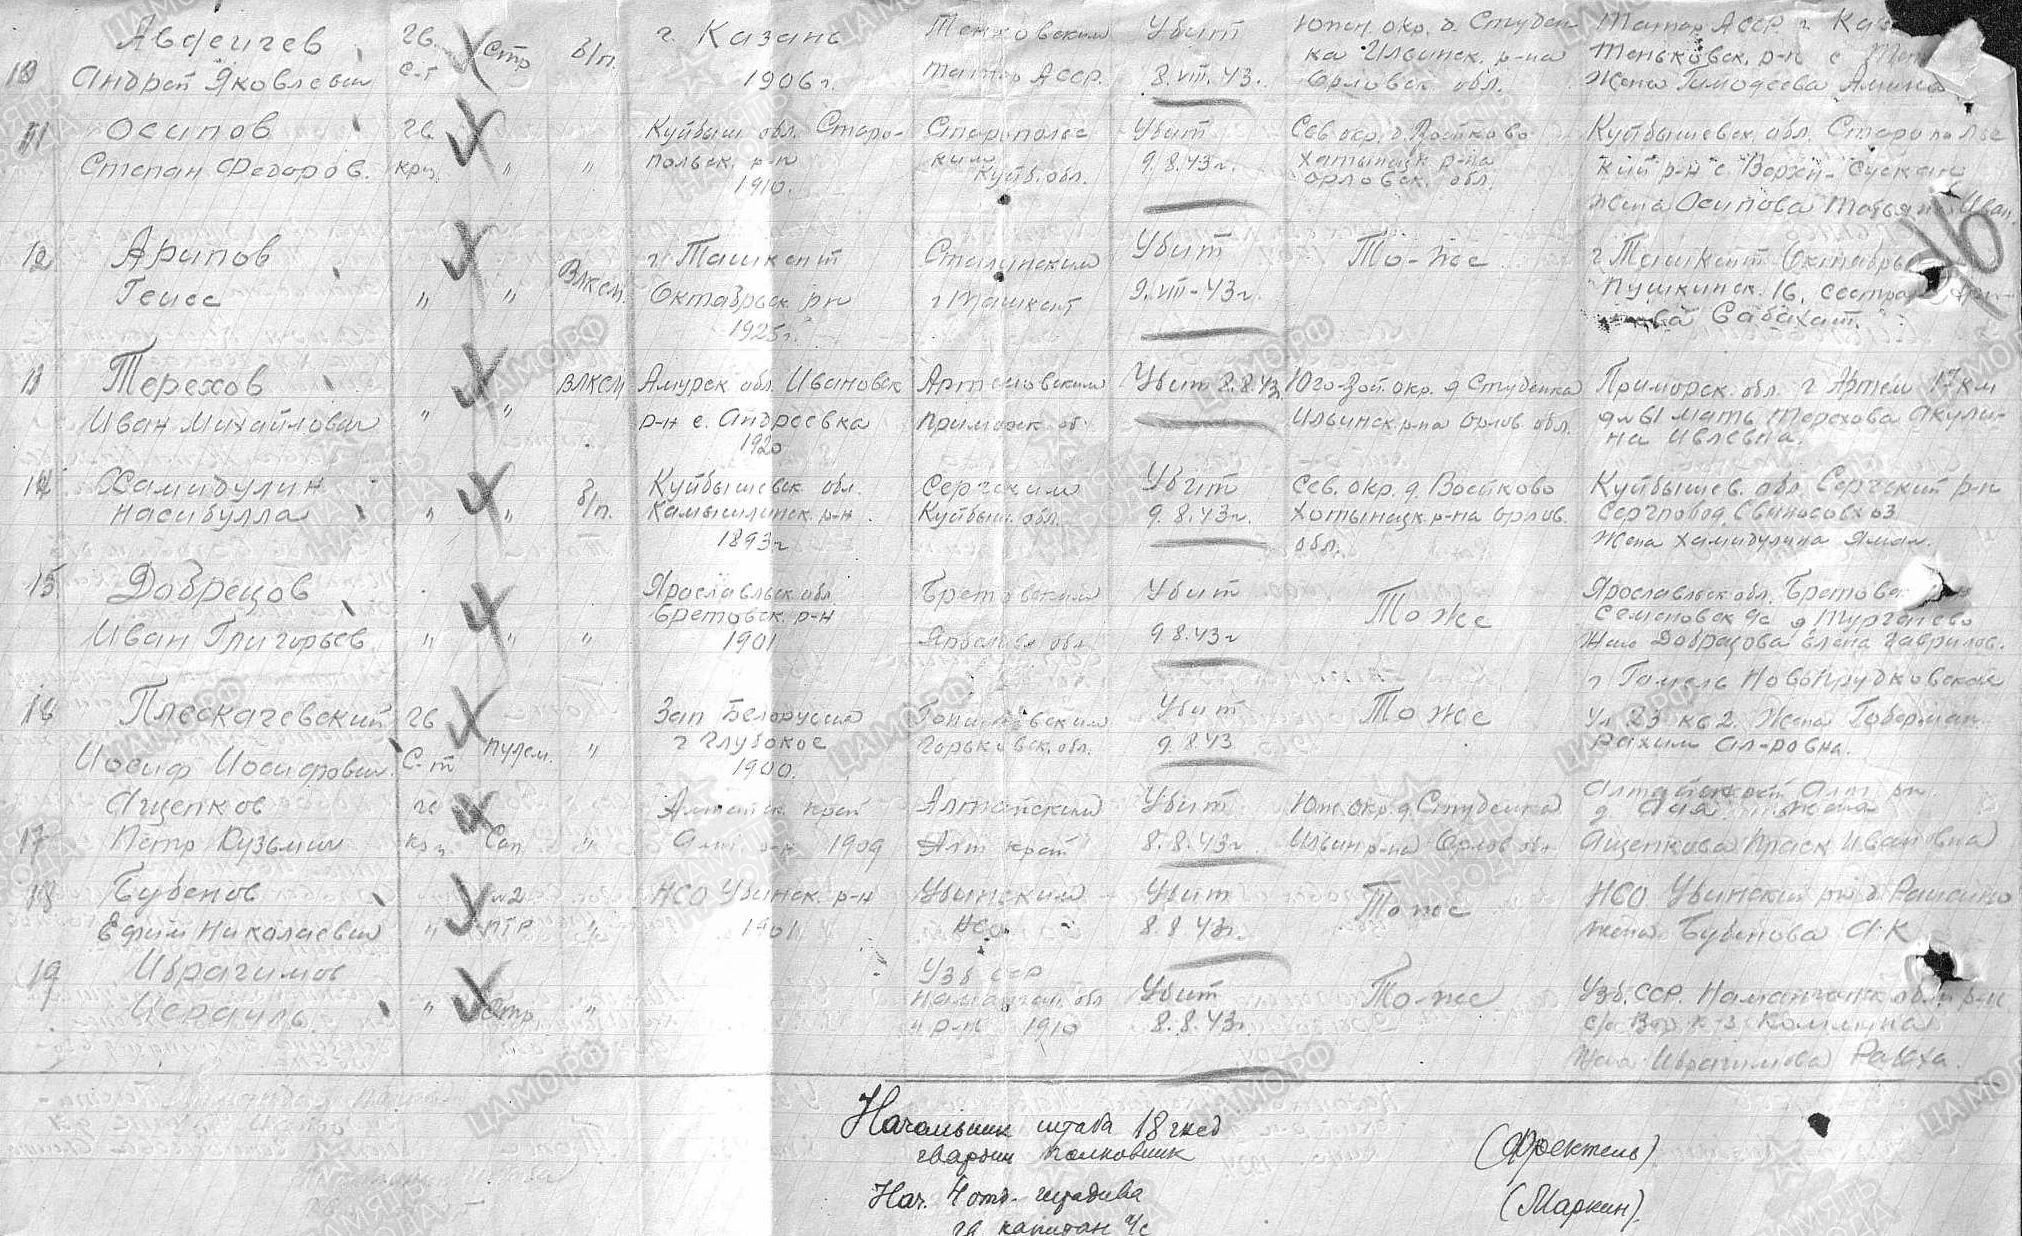 10 Авдеичев гв. Стр б/п. г. Казань Теньковским Убит Южн. окр. д. Студен- Татар АССР г. Каз
Андрей Яковлевич с-т 1906 г. Татар АССР. 8.VIII.43. ка Ильинск. р-на Орловск обл. Теньковск. р-н с
Жена Тимофеева Амина
11 Осипов гв. " " Куйбыш обл. Старо- Ставрополь Убит Сев окр. д. Войково Куйбышевск. обл. Ставрополь
Степан Федоров. крц. польск. р-н ким Куйб. обл. 9.8.43 г. Хотынецк р-на кий р-н с Верхн- Сускан
1910. Орловск. обл. жена Осипова Татьяна Иван.
12 Арипов " " ВЛКСМ. г. Ташкент Сталинским Убит То-же г Ташкент Октябрьс
Геисс Октябрьск р-н г Ташкент 9.VIII-43 г. Пушкинск. 16. сестра Ари-
1925 г. ва Сабахат.
13 Терехов " " ВЛКСМ Амурск обл. Ивановск Артемовским Убит 8.8.43 Юго-Зап. окр. д Студенка Приморск. обл. г Артем 17 км
Иван Михайлович р-н с. Андреевка Приморск об. Ильинск р-на Орлов. обл. мать Терехова Акули-
1920 на Ивлевна.
14 Хамидулин " " б/п. Куйбышевск обл. Сергским Убит Сев. окр. д. Войково Куйбышев. обл Сергский р-н
Насибулла Камышлинск. р-н Куйбыш. обл. 9.8.43 г. Хотынецк р-на Орлов. Свиносовхоз
1893 г обл. Жена Хамидулина Ямал.
15 Добрецов " " " Ярославльск обл Бретовским Убит То же Ярославльск обл. Бретовск
Иван Григорьев Бретовск. р-н Ярославл обл 9.8.43 г Семеновск с/с д Тургенево
1901 Жена Добрецова Елена Гаврилов.
16 Плескачевский гв Пулем. " Зап Белоруссия Убит То же г Гомель Новопрудковская
Иосиф Иосифович. с-т г Глубокое Горьковск. обл. 9.8.43 ул 23 кв 2. Жена Гоберман
1900. Рахим Ал-ровна.
17 Ащепков гв Сап " Алтайск край Алтайским Убит Южн окр. д. Студенка Алтайск Алт рн
Петр Кузьмич крц. Алт р-н 1909 Алт край 8.8.43 г. Ильин р-на Орлов обл. д. Ая жена
Ащепкова Праск Ивановна
18 Бубенов " ПТР " НСО Убинск. р-н Убинским Убит То же НСО Убинский рн д. Раисино
Ефим Николаевич 1901 НСО 8.8.43 г. жена Бубенова А. К
19 Ибрагимов " стр. " Узб ССР Убит То-же Узб. ССР. Наманганск обл и р-н
Исраиль. Наманган. обл 8.8.43 г. с/с к-з Коммуна
" р-н 1910 Жена Ибрагимова Рабха.
Начальник штаба 18 гксд
гвардии полковник (Френтель).
Нач. 4 отд. штадива
гв капитан а/с (Маркин).
96